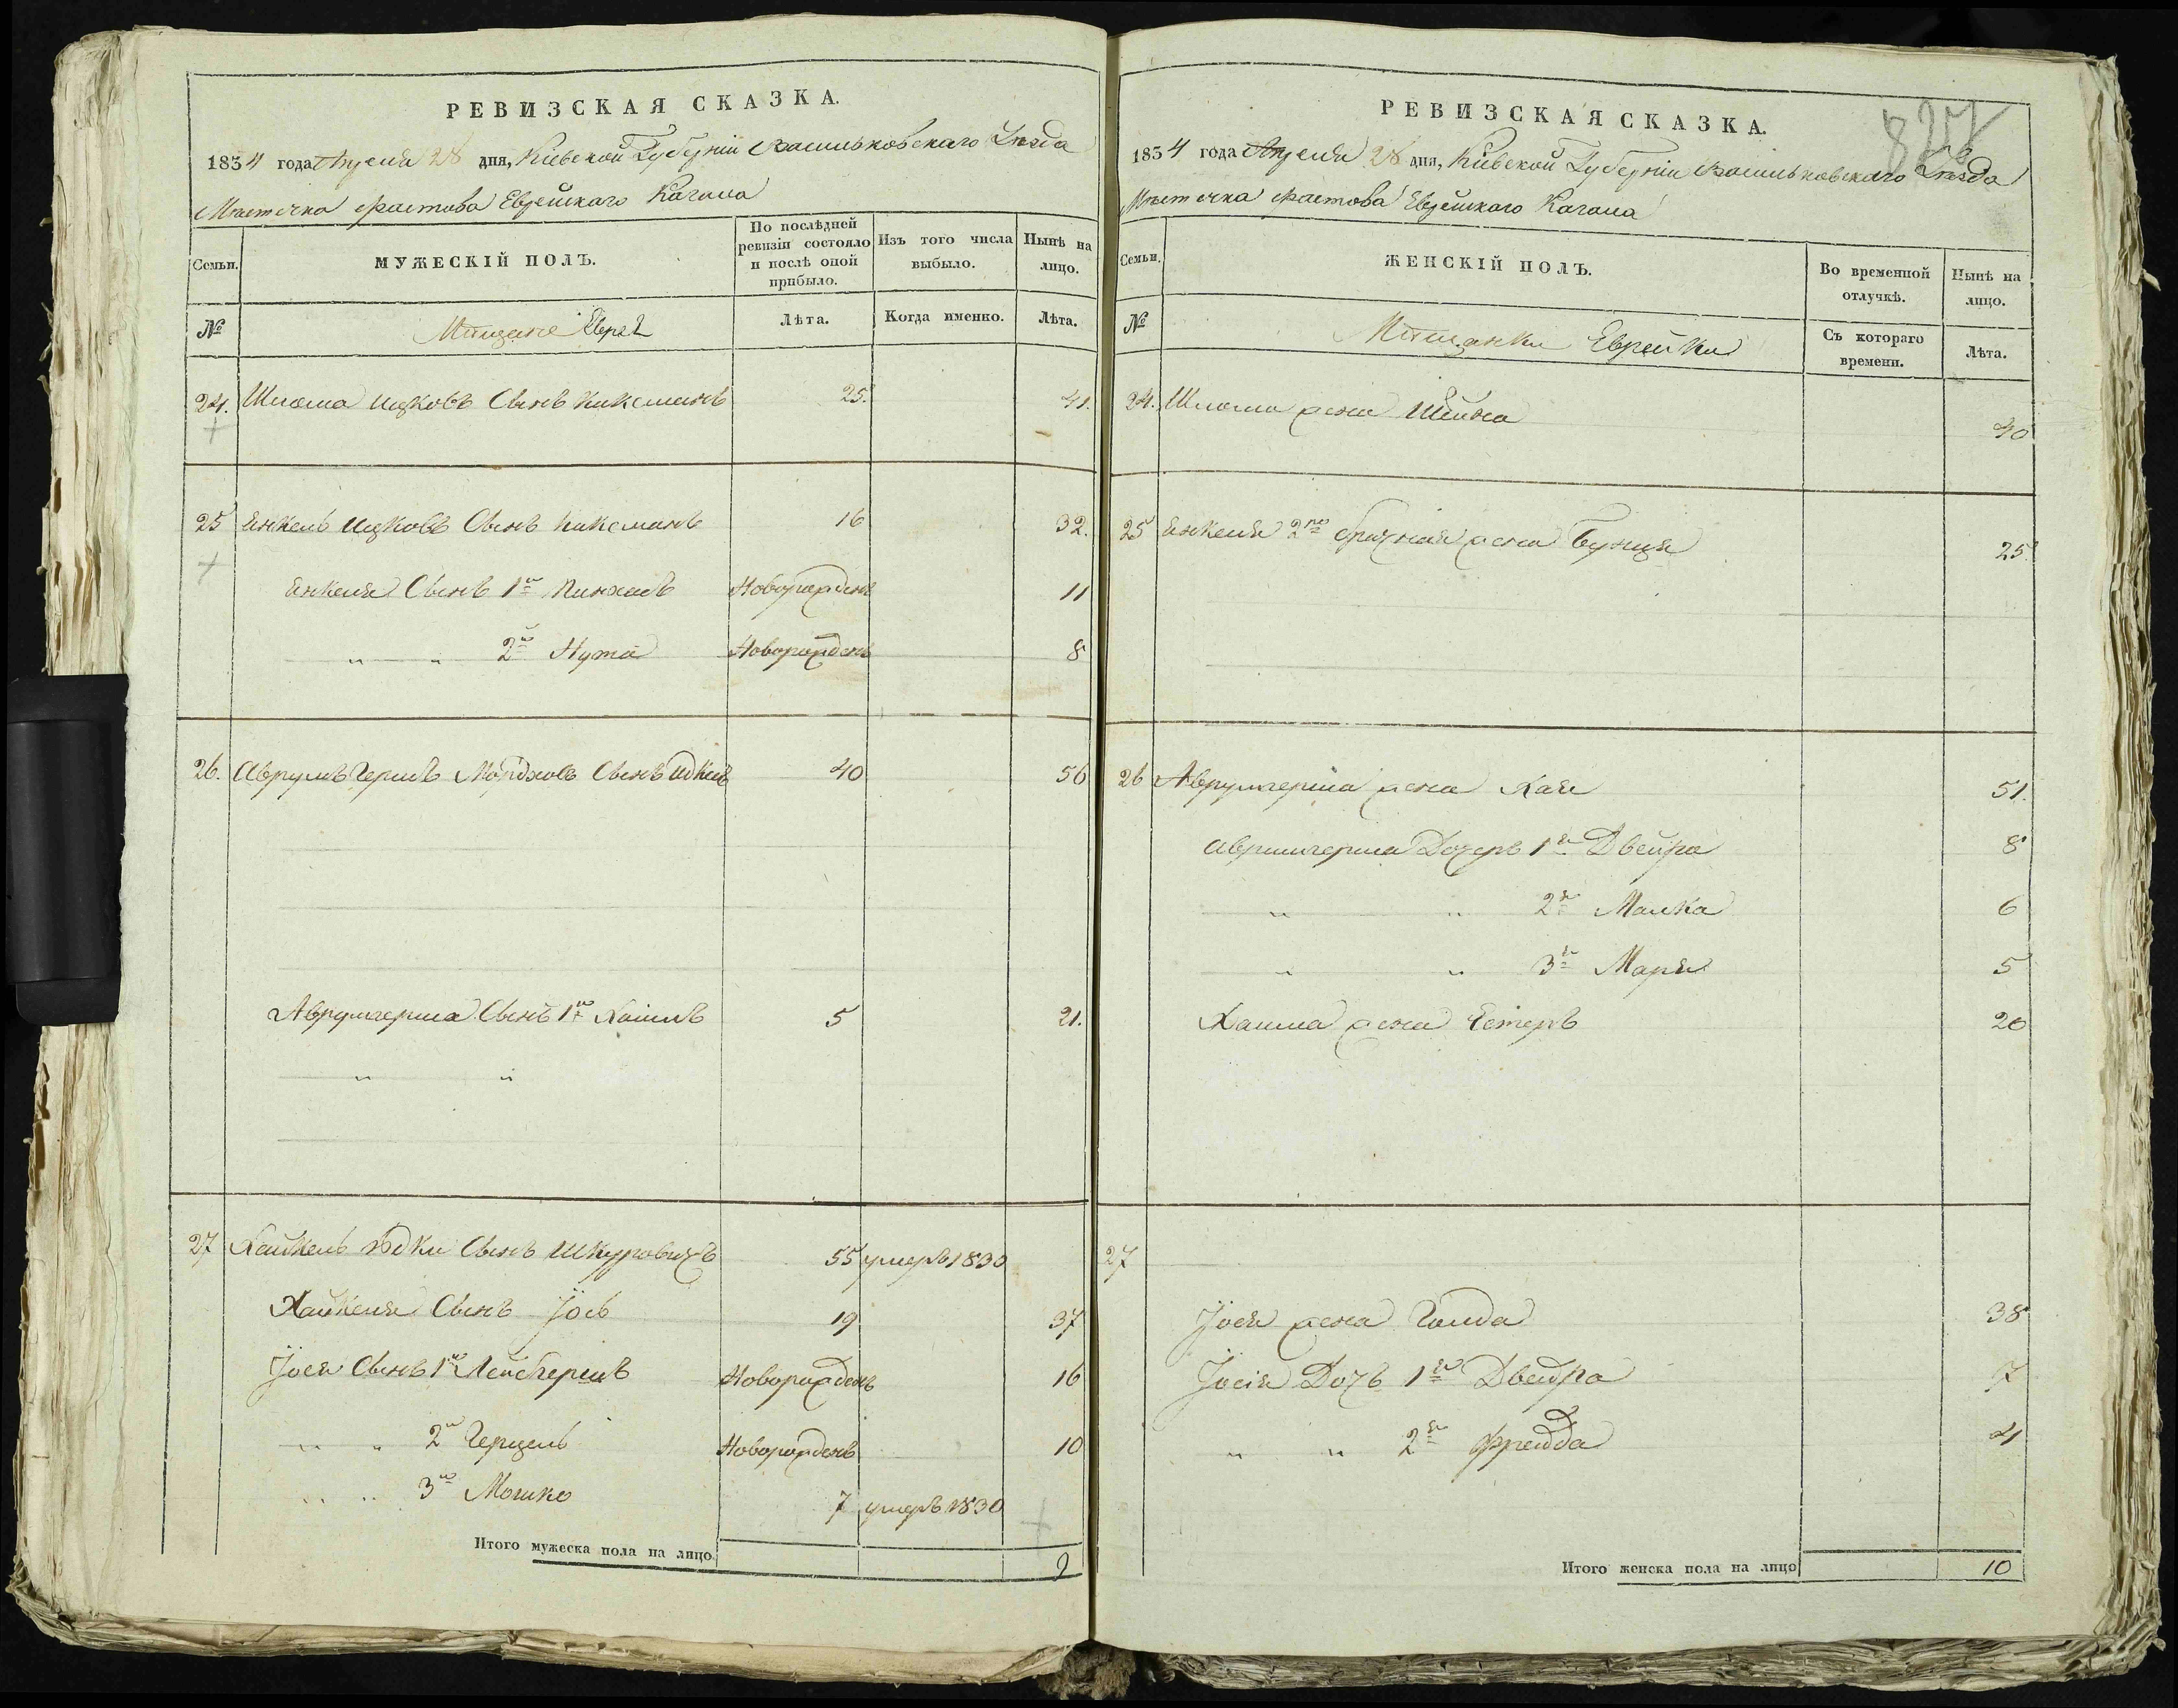 РЕВИЗСКАЯ СКАЗКА.
1834 года Апреля 28 дня, Кіевской Губерніи Васильковскаго Уезда
Местечка Фастова Еврейскаго Кагала
Семьи. МУЖЕСКІЙ ПОЛЪ. По послѣдней ревизіи состояло и послѣ оной прибыло. Изъ того числа выбыло. Нынѣ на лицо.
№ Мещане Евреи Лѣта. Когда именно. Лѣта.
24. Шлома Ицковъ Сынъ 25. 41.
25 Янкель Ицковъ Сынъ 16 32.
Янкеля Сынъ 1й Пинхасъ Новорожденъ 11
" " 2й Нута Новорожденъ 8
26. Аврумъ Гершъ Мордковъ Сынъ 40 56
Аврумгерша Сынъ 1й Хаимъ 5 21.
" "
27 Хайкель Сынъ Шкуровичъ 55 умеръ 1830
Хайкеля Сынъ Іось 19 37
Іося Сынъ 1й Лейбгершъ Новорожденъ 16
" " 2й Герцель Новорожденъ 10
" " 3й Мошко 7 умеръ 1830
Итого мужеска пола на лицо. 9
827
РЕВИЗСКАЯ СКАЗКА.
1834 года Апреля 28 дня, Кіевской Губерніи Васильковскаго Уезда
Местечка Фастова Еврейскаго Кагала
Семьи. ЖЕНСКІЙ ПОЛЪ. Во временной отлучкѣ. Нынѣ на лицо.
№ Мещанки Еврейки Съ котораго времени. Лѣта.
24. Шлома жена Шейна 40
25 Янкеля 2го брачная жена Бунця 25.
26 Аврумгерша жена Хая 51.
Аврумгерша Дочерь 1я Двейра 8
" " 2я Малка 6
" " 3я Марья 5
Хаима жена Естеръ 20
27
Іося жена Голда 38
Іосія Дочь 1я Двейра 7
" " 2я Фрейда 4
Итого женска пола на лицо 10